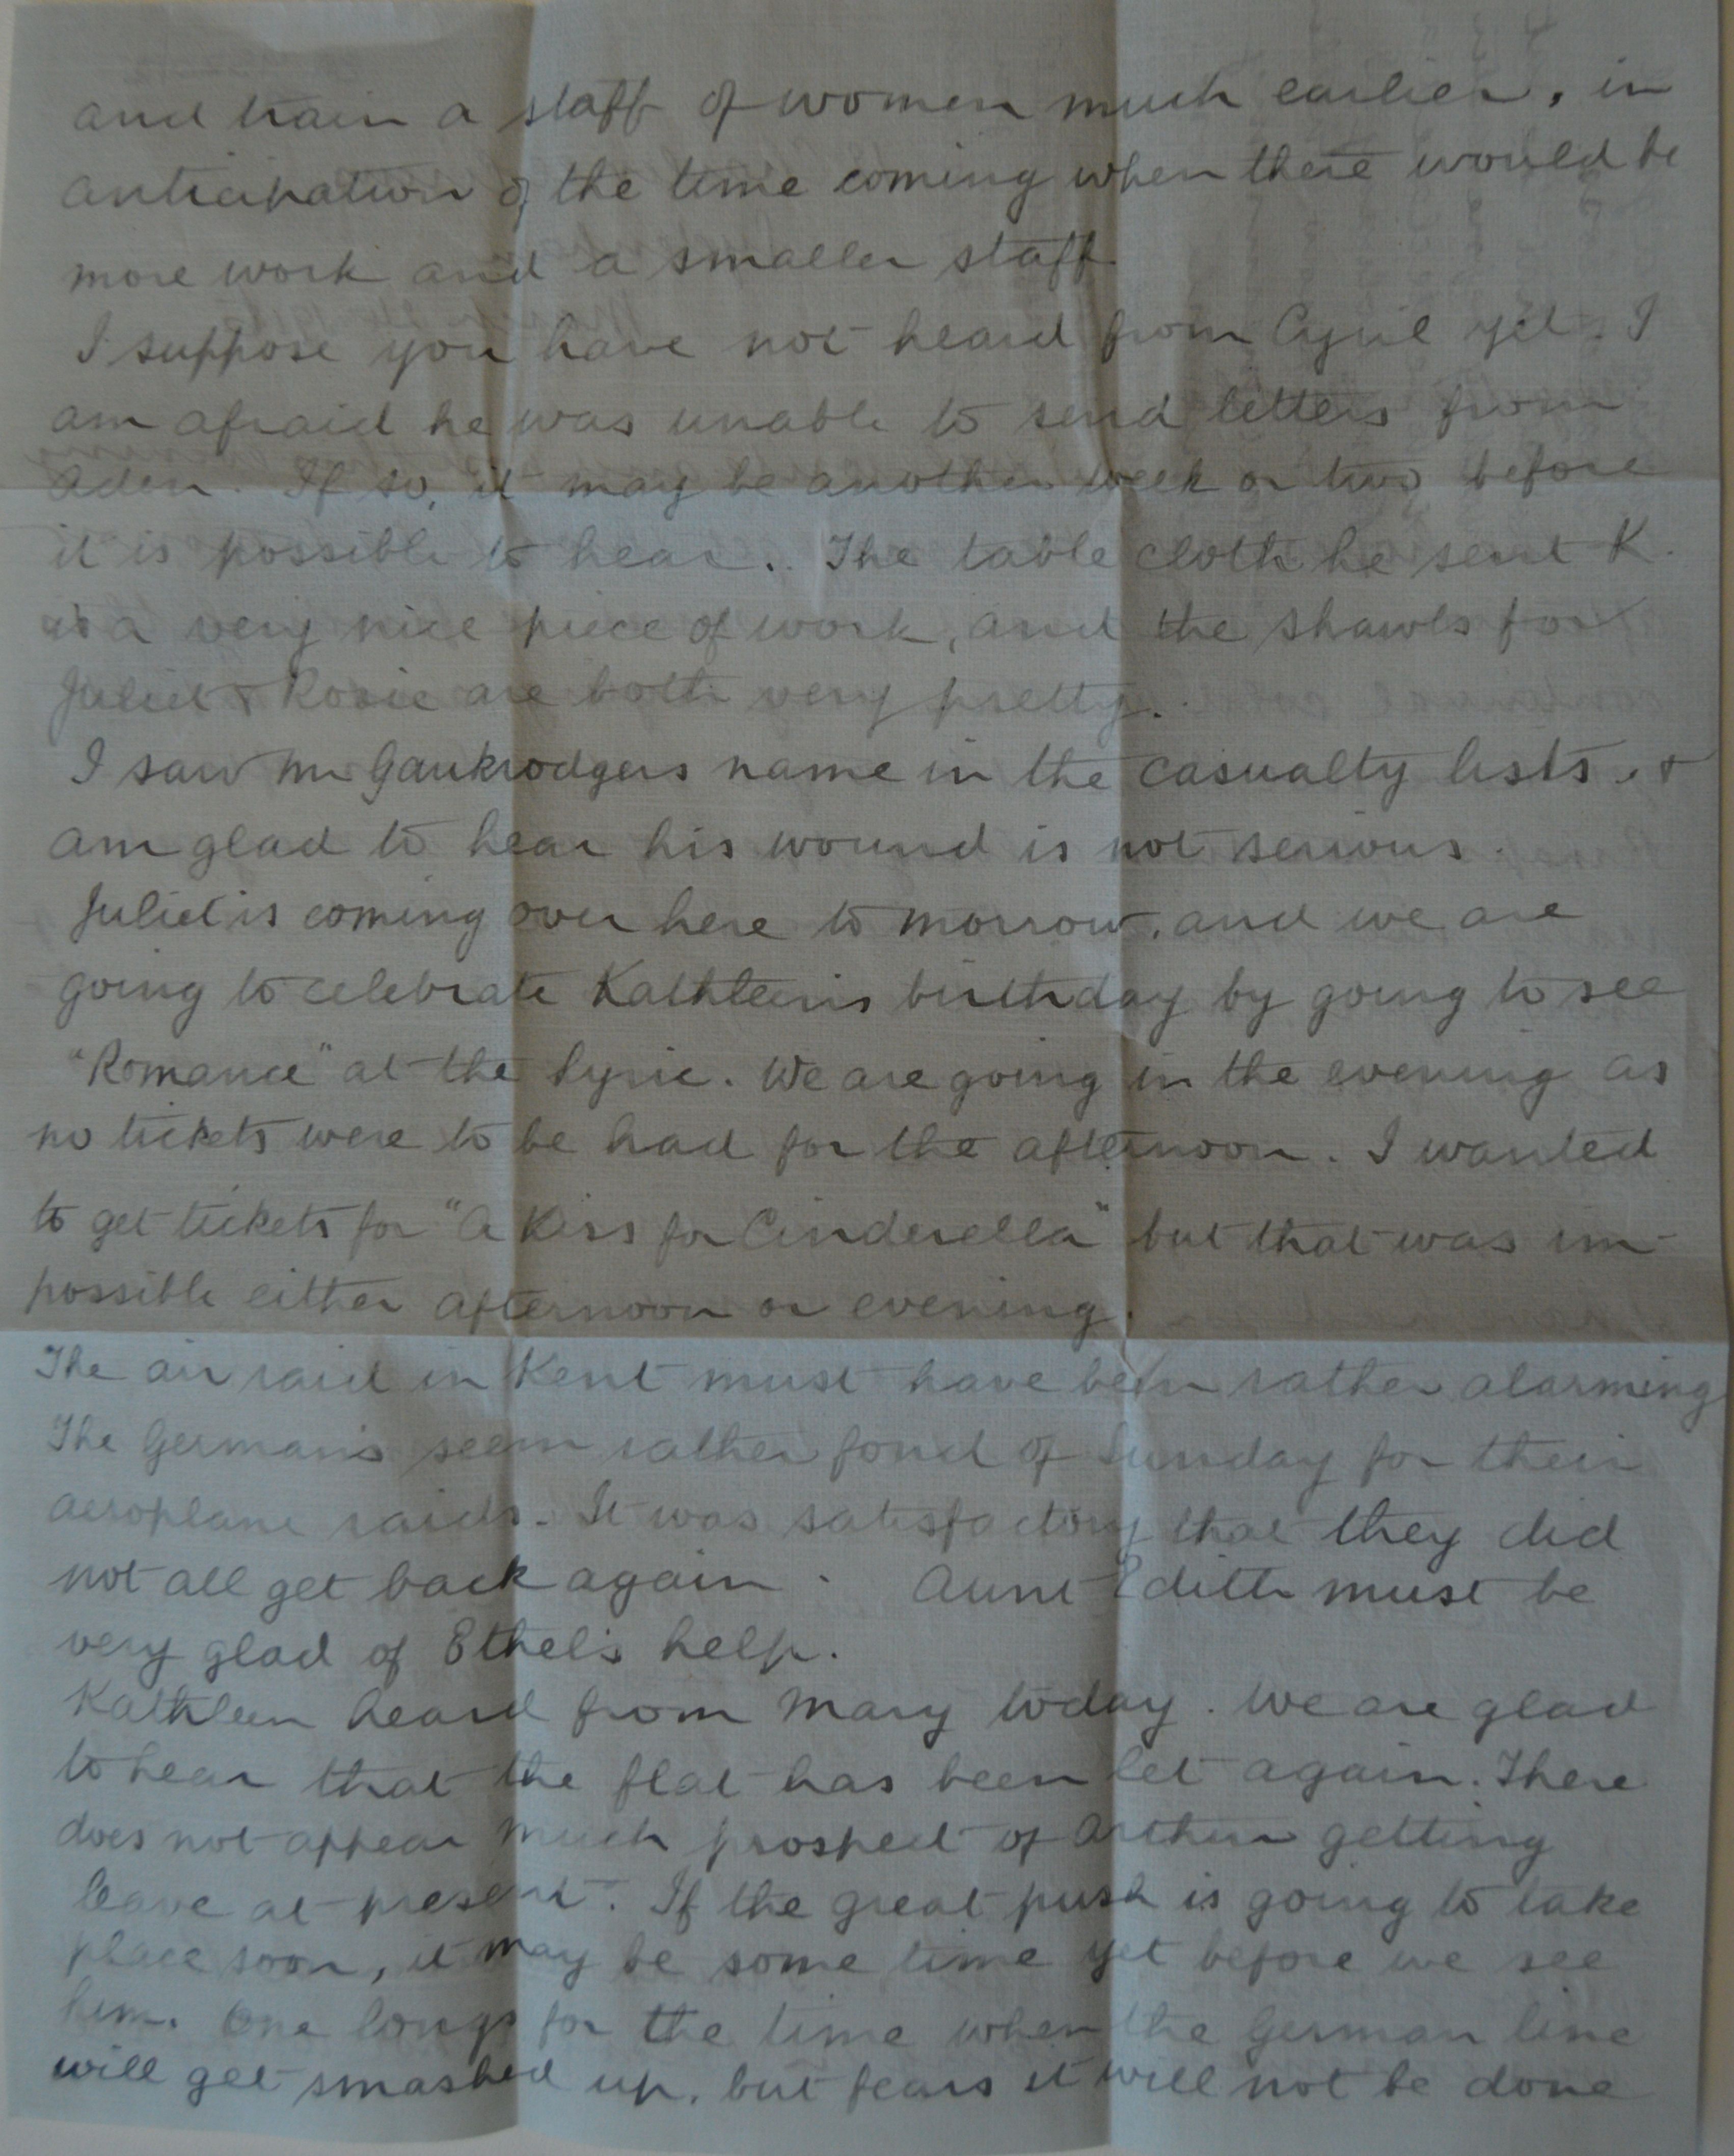 and train a staff of women much earlier, in
anticipation of the time coming when there would be
more work and a smaller staff
I suppose you have not heard from Cyril yet. I
am afraid he was unable to send letters from
Aden. If so, it may be another week or two before
it is possible to hear. The table cloth he sent K.
is a very nice piece of work, and the shawls for
Juliet & Rosie are both very pretty.
I saw Mr Gaukrodgers name in the casualty lists, &
am glad to hear his wound is not serious.
Juliet is coming over here to morrow, and we are
going to celebrate Kathleen's birthday by going to see
"Romance" at the Lyric. We are going in the evening as
no tickets were to be had for the afternoon. I wanted
to get tickets for "A Kiss for Cinderella" but that was im-
possible either afternoon or evening.
The air raid in Kent must have been rather alarming
The Germans seem rather fond of Sunday for their
aeroplane raids. It was satisfactory that they did
not all get back again. Aunt Edith must be
very glad of Ethel's help.
Kathleen heard from Mary today. We are glad
to hear that the flat has been let again. There
does not appear much prospect of Arthur getting
leave at present. If the great push is going to take
place soon, it may be some time yet before we see
him. One longs for the time when the German line
will get smashed up, but fears it will not be done